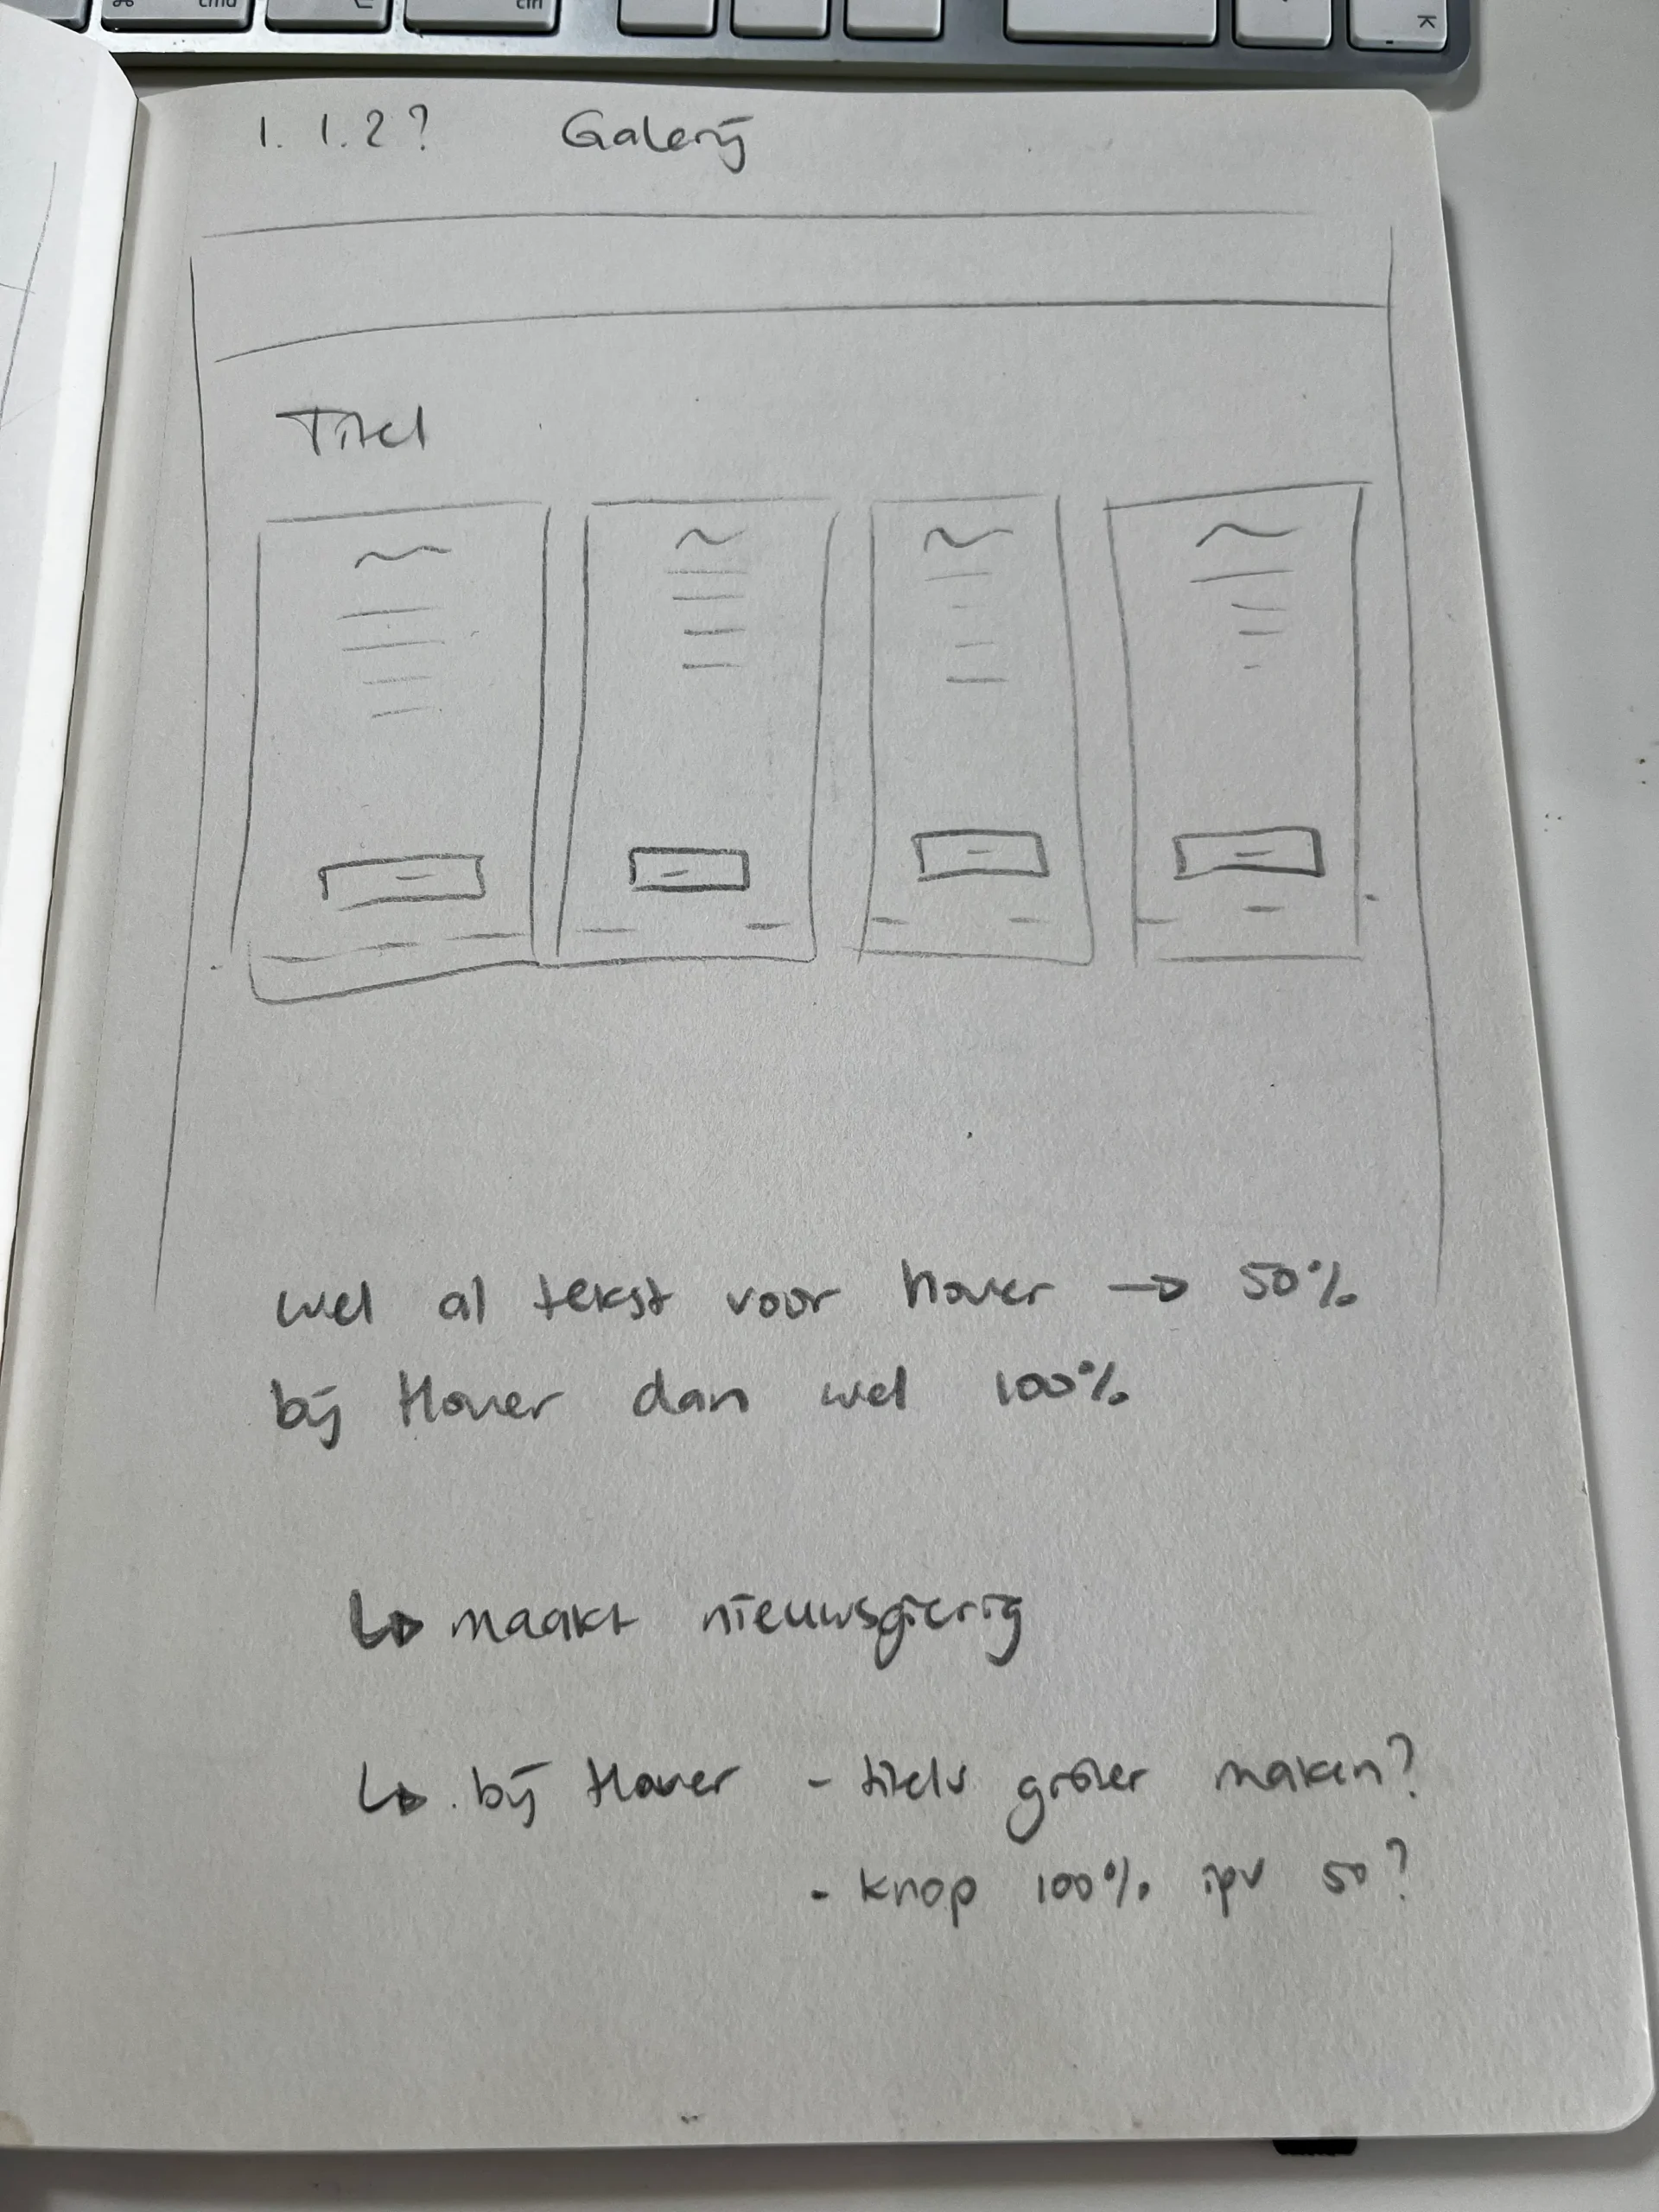 cmd
ctrl
K
1. 1.2? Galerij
Titel
wel al tekst voor hover → 50%
bij Hover dan wel 100%
↳ maakt nieuwsgierig
↳ bij Hover - titels groter maken?
- knop 100% ipv 50?